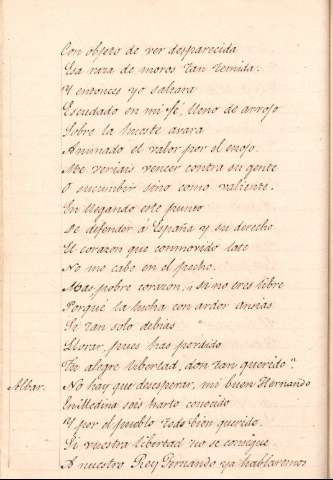 Con objeto de ver desparecida
Esa raza de moros tan temida.
Y entonces yo saltara
Escudado en mi fé, lleno de arrojo
Sobre la hueste avara
Animado el valor por el enojo.
Me veriais vencer contra su gente
O sucumbir sino como valiente.
En llegando este punto
De defender á España y su derecho
El corazon que conmovido late
No me cabe en el pecho.
Mas pobre corazon, si no eres libre
Porqué la lucha con ardor ansias
Si tan solo debias
Llorar, pues has perdido
Tu alegre libertad, don tan querido".
Albar. No hay que desesperar, mi buen Hernando
En Medina sois harto conocido
Y por el pueblo todo bien querido.
Si vuestra libertad no se consigue
A nuestro Rey Fernando ya hablaremos